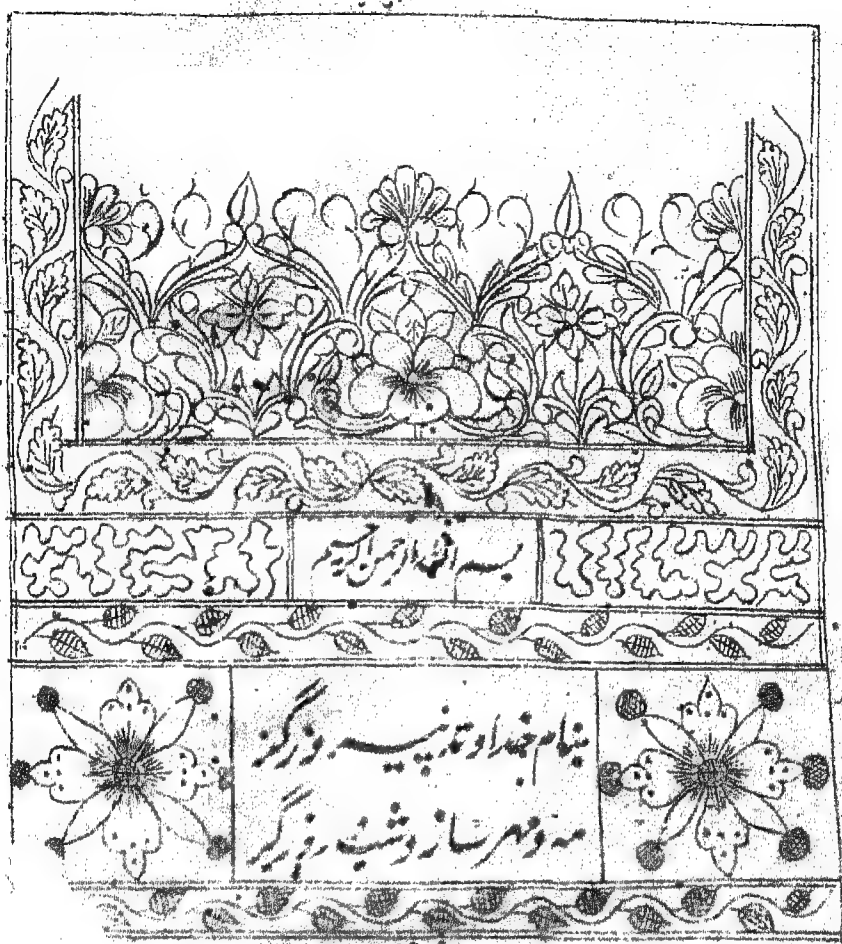 بسم الله الرحمن الرحیم
بنام خداوند فیروزگر
مه و مهر ساز و شب و روزگر